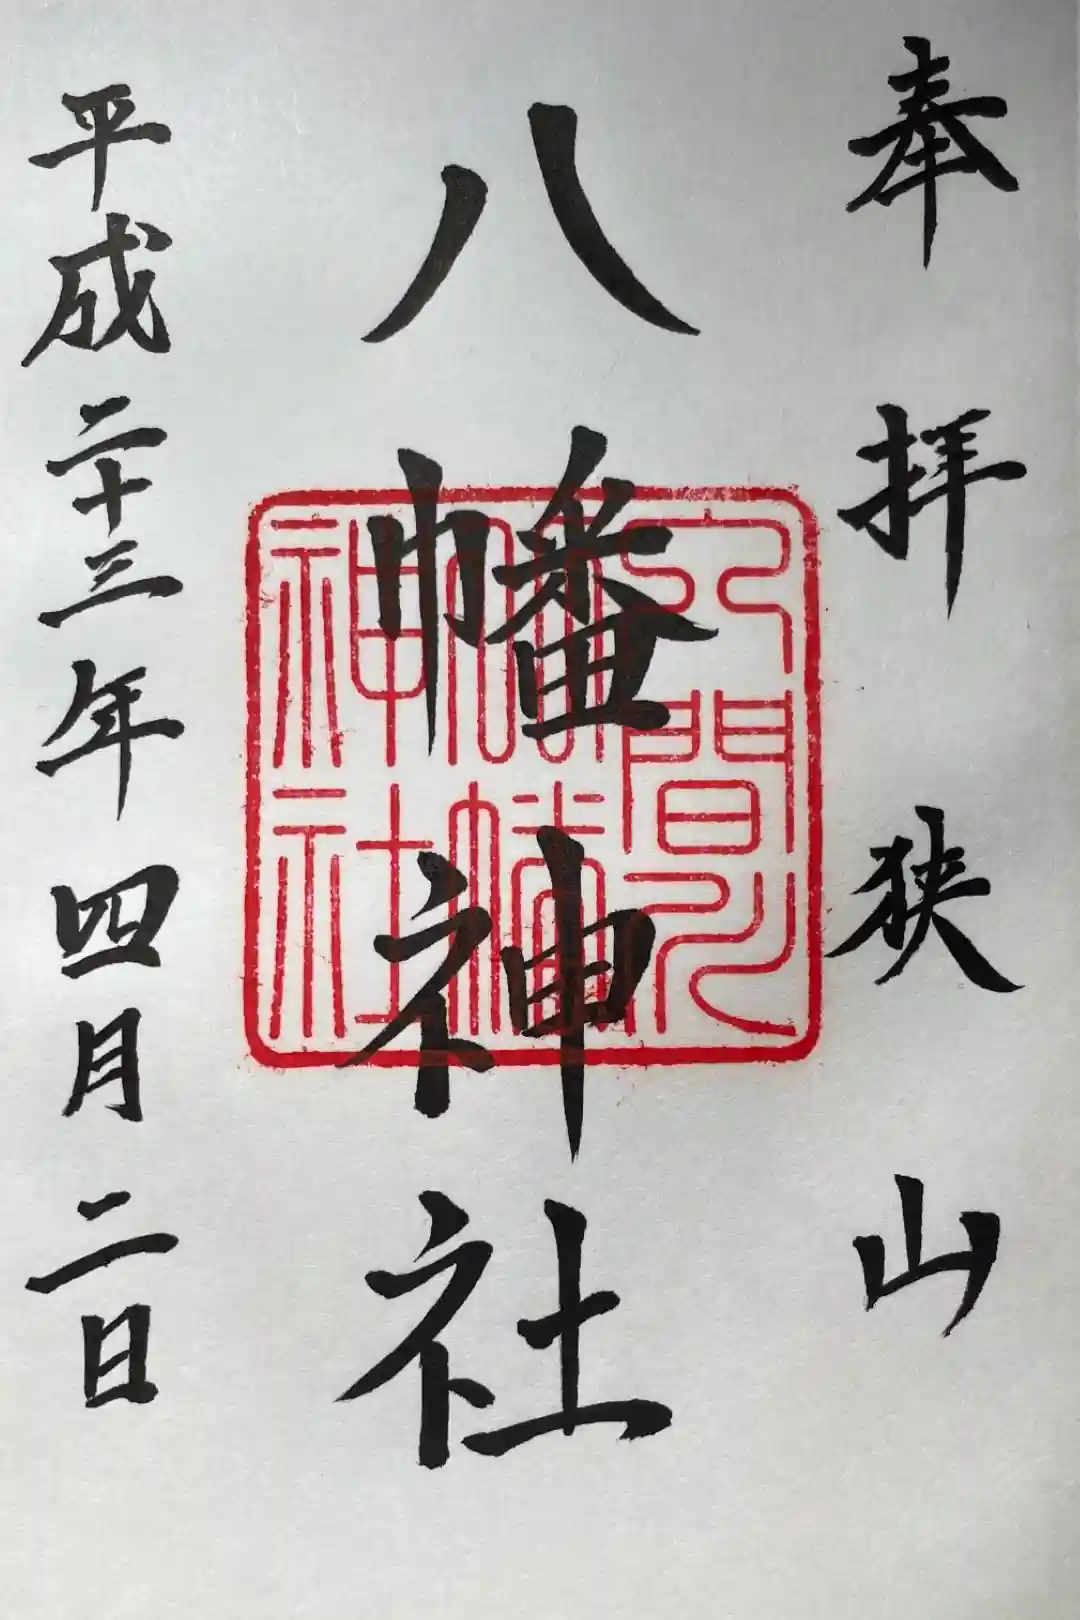 奉拝 狭山
八幡神社
平成二十三年四月二日
幡
神社